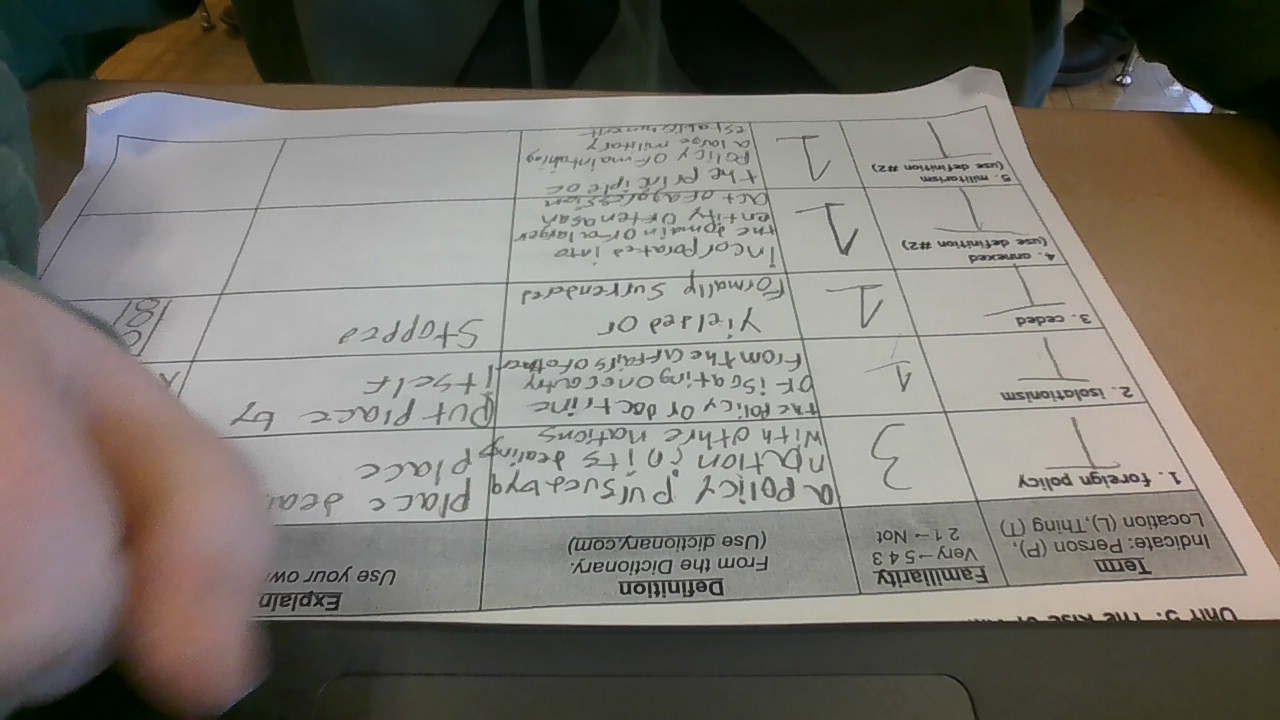 Term
Indicate: Person (P),
Location (L), Thing (T)
Familiarity
Very→5 4 3
2 1→ Not
Definition
From the Dictionary.
(Use dictionary.com)
Explain
Use your own
1. foreign policy
T
3
a policy pursued by a
nation in its dealing
with othre nations
place
place
2. isolationism
T
1
the policy or doctrine
of isoating one coutry
from the affairs of other
put place by
itself
3. ceded
T
1
yielsed or
formally surrendered
Stopped
4. annexed
(use definition #2)
T
1
incorporated into
the domain of a larger
entity often as an
act of agglession
5. militarism
(use definition #2)
T
1
the principle or
policy of maintaining
a large military
establishment